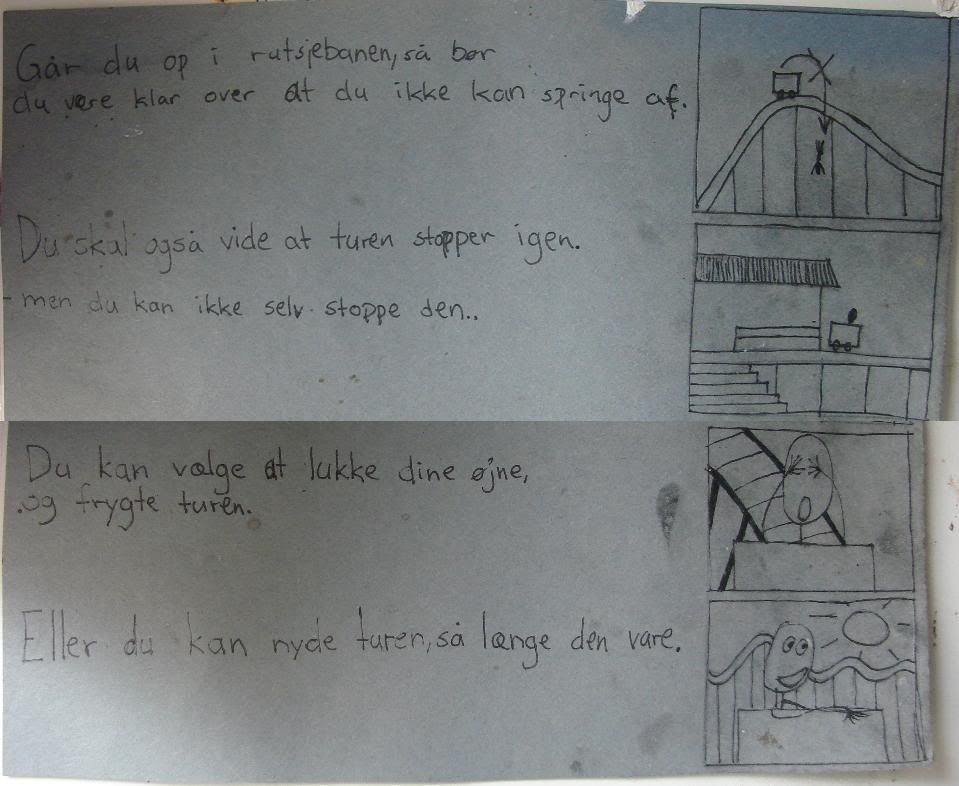 Går du op i rutsjebanen, så bør
du være klar over at du ikke kan springe af.
Du skal også vide at turen stopper igen.
- men du kan ikke selv stoppe den..
Du kan vælge at lukke dine øjne,
og frygte turen.
Eller du kan nyde turen, så længe den vare.